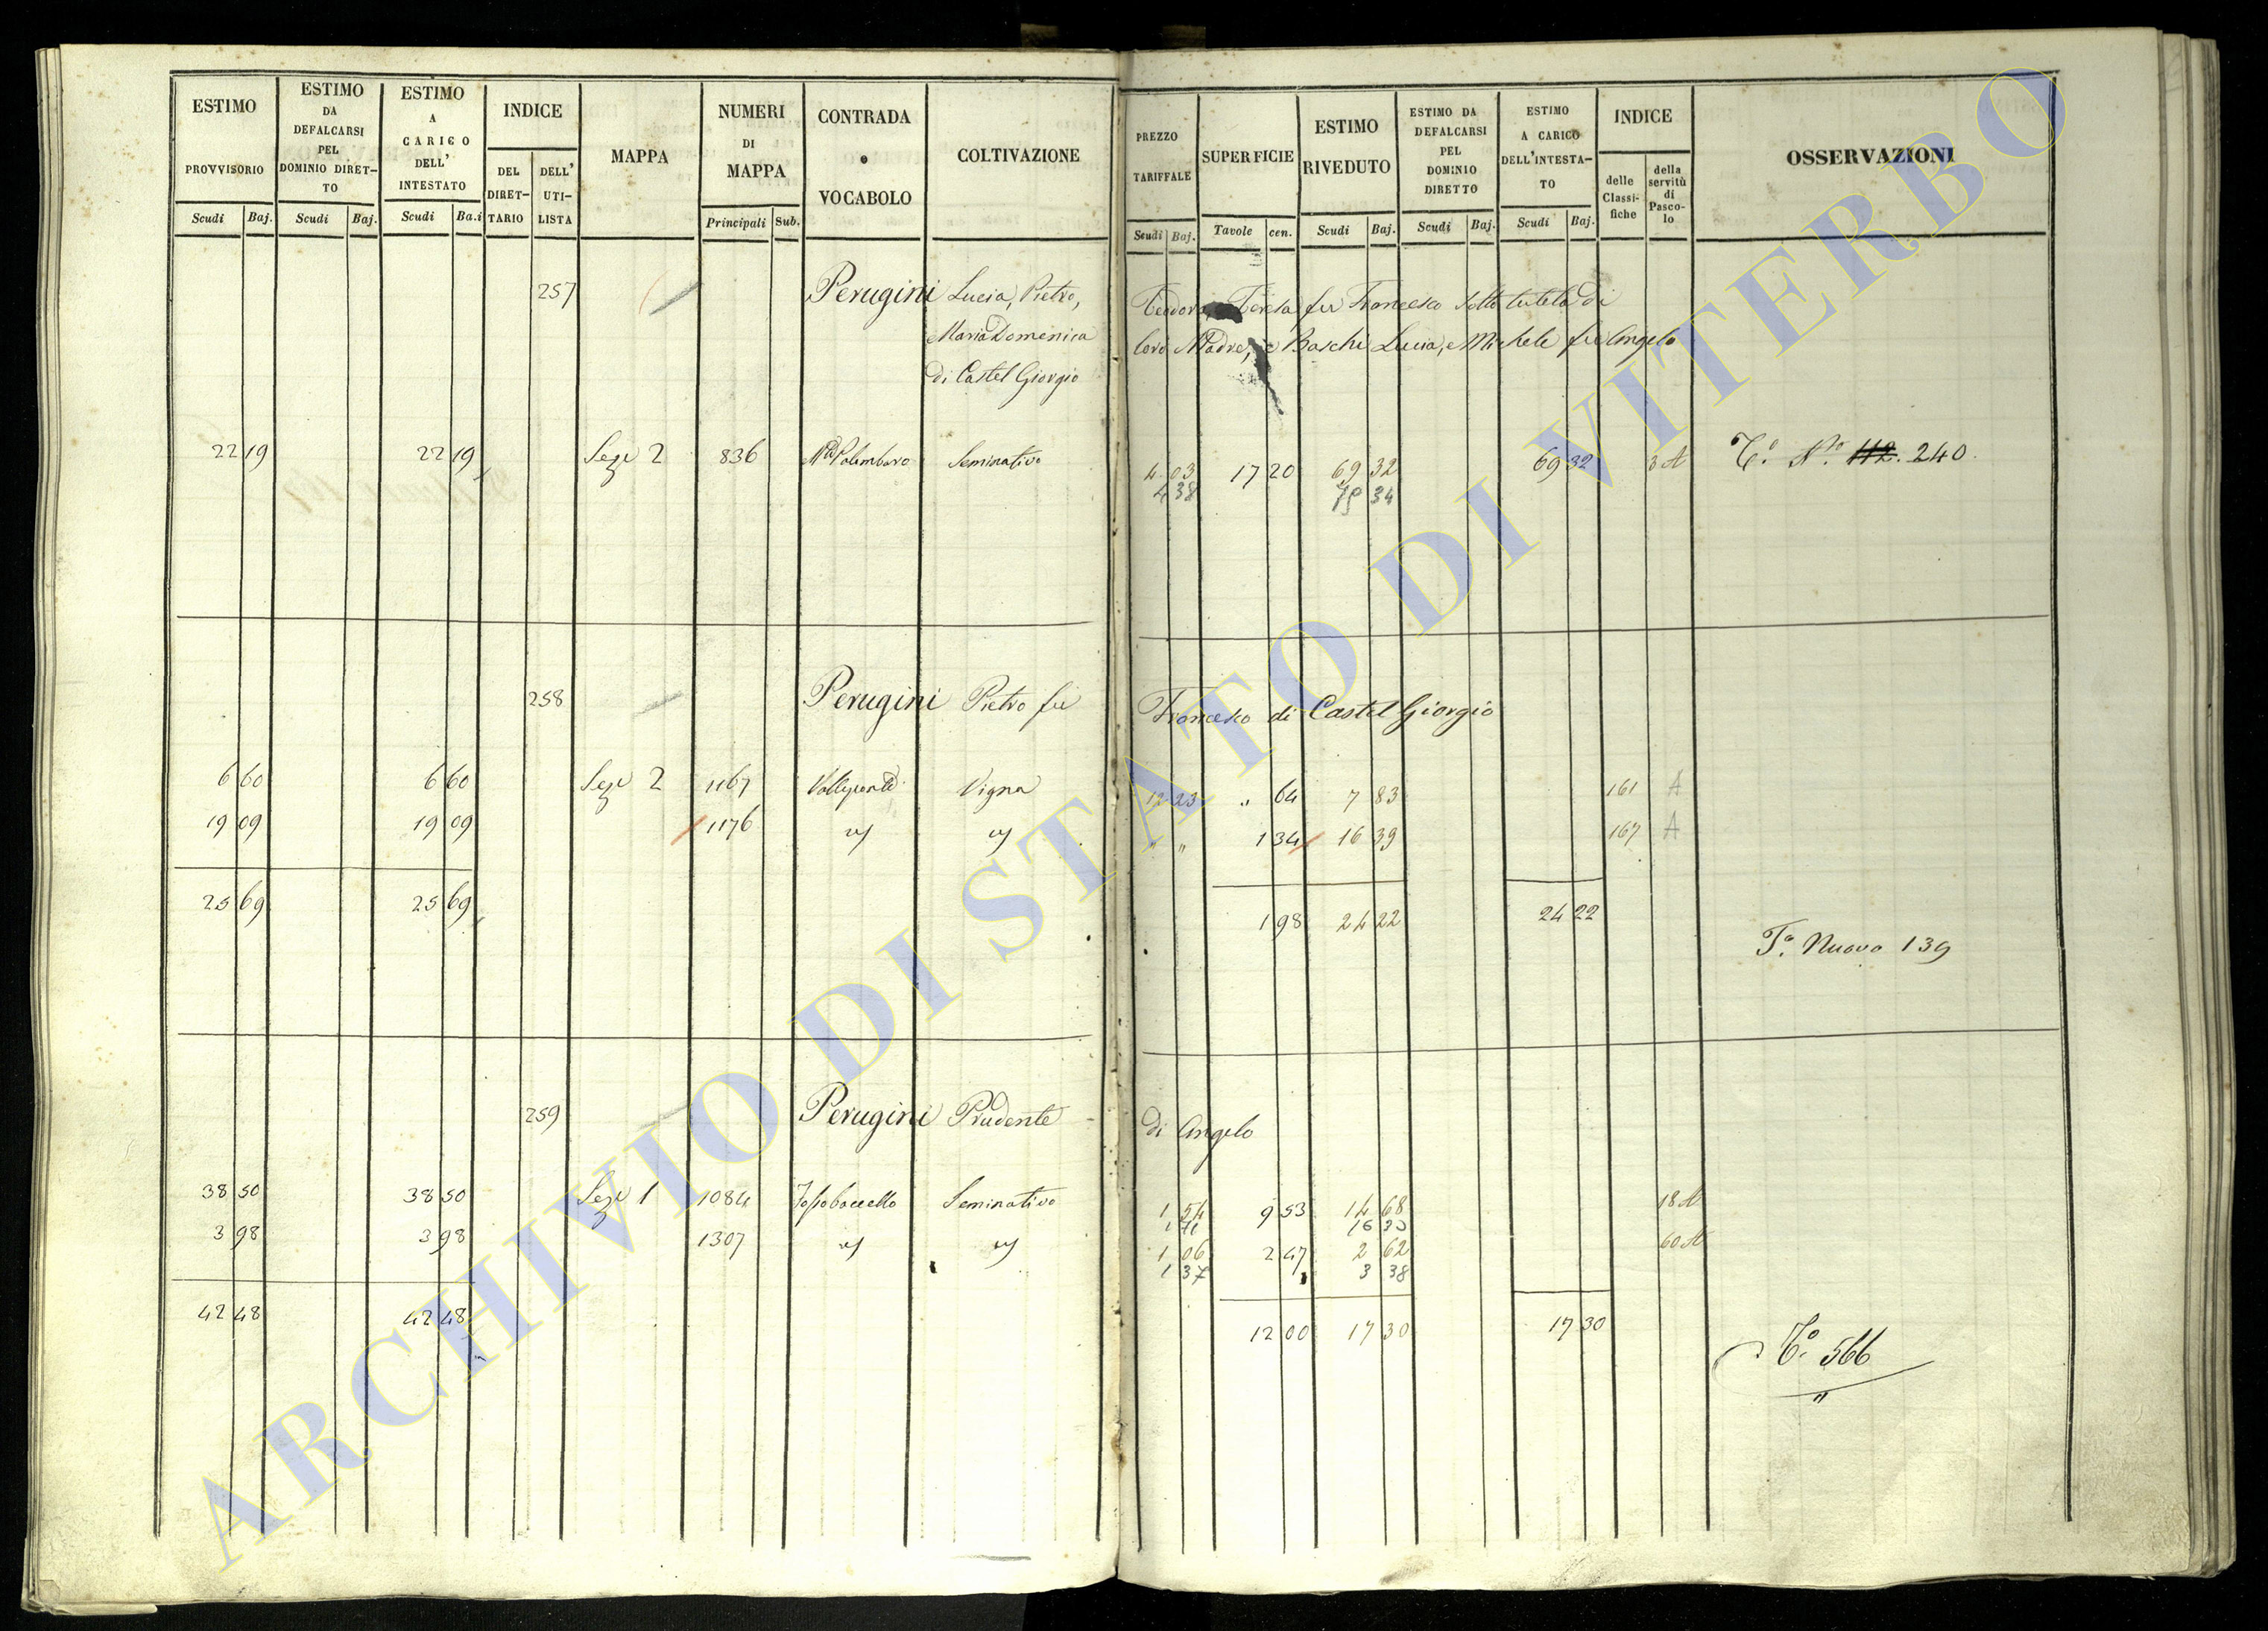 ESTIMO PROVVISORIO Scudi Baj.
ESTIMO DA DEFALCARSI PEL DOMINIO DIRET-TO Scudi Baj.
ESTIMO A CARICO DELL' INTESTATO Scudi Ba.i
INDICE DEL DIRET-TARIO DELL' UTI-LISTA
MAPPA
NUMERI DI MAPPA Principali Sub.
CONTRADA o VOCABOLO
COLTIVAZIONE
PREZZO TARIFFALE Scudi Baj.
SUPERFICIE Tavole cen.
ESTIMO RIVEDUTO Scudi Baj.
ESTIMO DA DEFALCARSI PEL DOMINIO DIRETTO Scudi Baj.
ESTIMO A CARICO DELL'INTESTA-TO Scudi Baj.
INDICE delle Classi-fiche della servitù di Pasco-lo
OSSERVAZIONI
257 Perugini Lucia, Pietro, Teodora, Teresa fu Francesco sotto tutela di
Maria Domenica loro Madre, e Baschi Lucia, e Michele fu Angelo
di Castel Giorgio
22 19 22 19 Seze 2 836 Seminativo 4 03 17 20 69 32 69 32 3 A To. No. 112. 240.
4 38 75 34
258 Perugini Pietro fu Francesco di Castel Giorgio
6 60 6 60 Seze 2 1167 Vigna 12 23 " 64 7 83 161 A
19 09 19 09 1176 " " 1 34 16 39 167 A
25 69 25 69 1 98 24 22 24 22
To. Nuovo 139
259 Perugini Prudente di Angelo
38 50 38 50 Seze 1 1084 Seminativo 1 54 9 53 14 68 18 A
1 71 16 30
3 98 3 98 1307 1 06 2 47 2 62 60 A
1 37 3 38
42 48 42 48 12 00 17 30 17 30
To. 566
"
ARCHIVIO DI STATO DI VITERBO